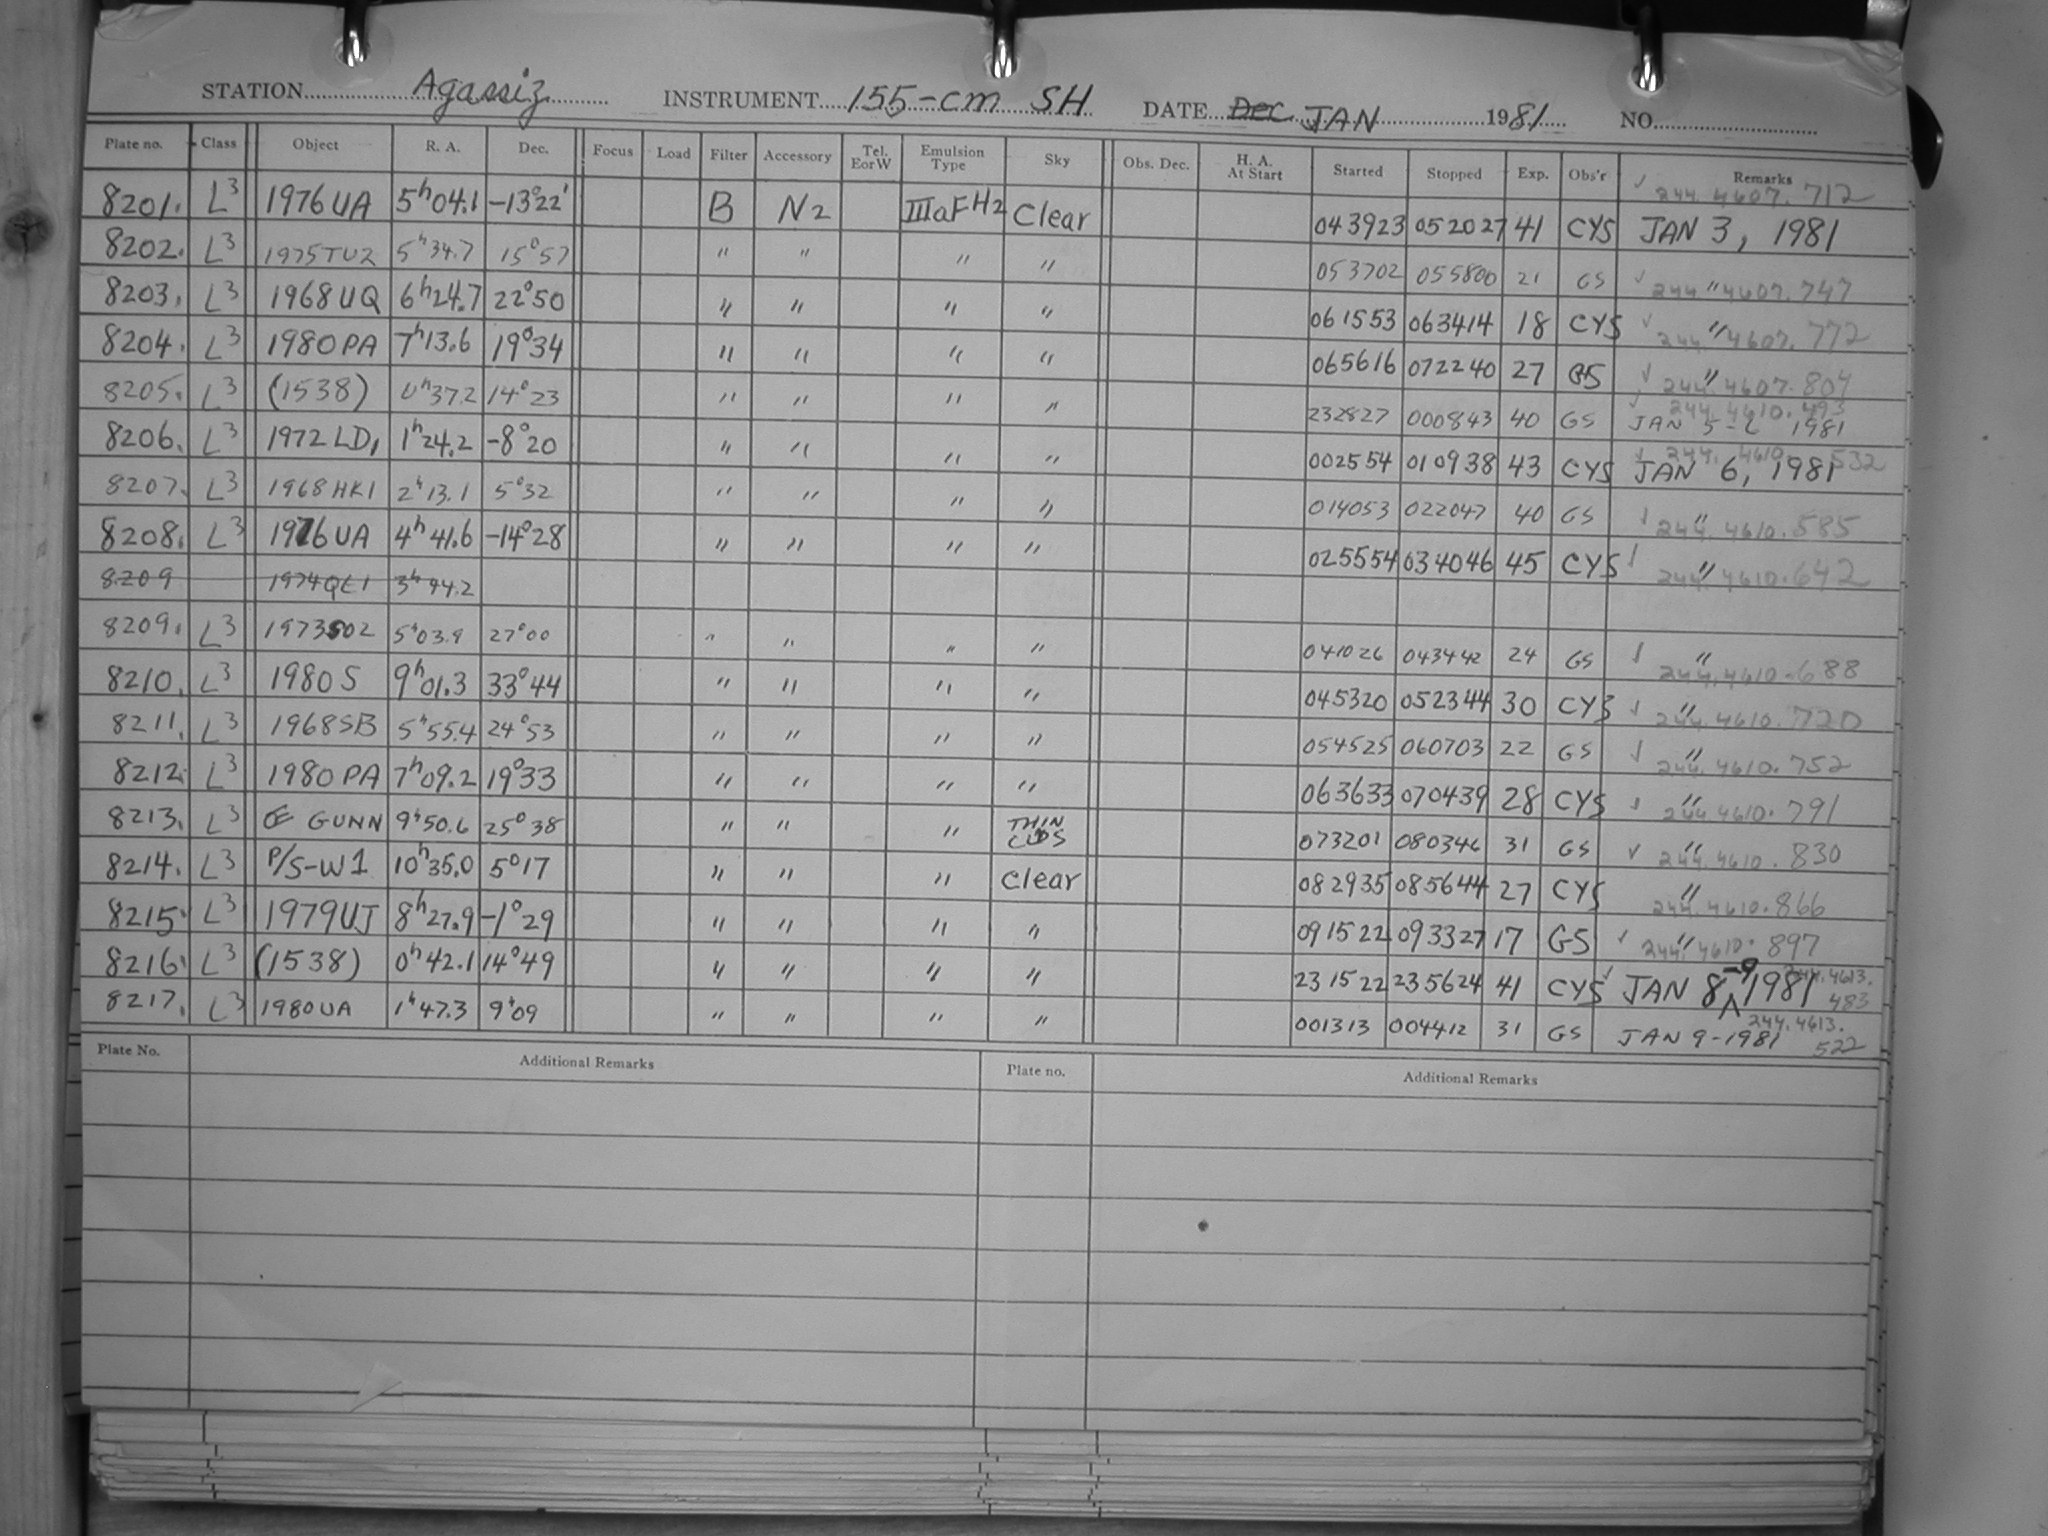 STATION Agassiz INSTRUMENT 155-cm SH DATE Dec JAN 1981 NO.
Plate no. Class Object R. A. Dec. Focus Load Filter Accessory Tel. E or W Emulsion Type Sky Obs. Dec. H. A. At Start Started Stopped Exp. Obs'r Remarks
8201. L3 1976 UA 5h04.1 -13°22' B N2 IIIaF H2 Clear 043923 052027 41 CYS ✓ 244.4607.712 JAN 3, 1981
8202. L3 1975TU2 5h34.7 15°57 " " " " 053702 055800 21 GS ✓ " 244.4607.747
8203. L3 1968 UQ 6h24.7 22°50 " " " " 061553 063414 18 CYS ✓ " 244.4607.772
8204. L3 1980 PA 7h13.6 19°34 " " " " 065616 072240 27 GS ✓ " 244.4607.804
8205. L3 (1538) 0h37.2 14°23 " " " " 232827 000843 40 GS ✓ 244.4610.493 JAN 5-6 1981
8206. L3 1972 LD1 1h24.2 -8°20 " " " " 002554 010938 43 CYS ✓ 244.4610.532 JAN 6, 1981
8207. L3 1968 HK1 2h13.1 5°32 " " " " 014053 022047 40 GS ✓ " 244.4610.585
8208. L3 1976 UA 4h41.6 -14°28 " " " " 025554 034046 45 CYS ✓ " 244.4610.642
8209 1974QE1 3h44.2
8209. L3 1973SO2 5h03.9 27°00 " " " " 041026 043442 24 GS ✓ " 244.4610.688
8210. L3 1980 S 9h01.3 33°44 " " " " 045320 052344 30 CYS ✓ " 244.4610.720
8211. L3 1968SB 5h55.4 24°53 " " " " 054525 060703 22 GS ✓ " 244.4610.752
8212. L3 1980 PA 7h09.2 19°33 " " " " 063633 070439 28 CYS ✓ " 244.4610.791
8213. L3 GUNN 9h50.6 25°38 " " " THIN CLDS 073201 080346 31 GS ✓ " 244.4610.830
8214. L3 P/S-W1 10h35.0 5°17 " " " Clear 082935 085644 27 CYS " 244.4610.866
8215. L3 1979UJ 8h27.9 -1°29 " " " " 091522 093327 17 GS ✓ " 244.4610.897
8216. L3 (1538) 0h42.1 14°49 " " " " 231522 235624 41 CYS ✓ JAN 8-9 1981 244.4613.483
8217. L3 1980UA 1h47.3 9°09 " " " " 001313 004412 31 GS JAN 9-1981 244.4613.522
Plate No. Additional Remarks Plate no. Additional Remarks